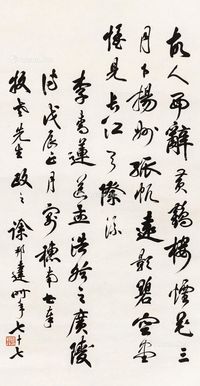 故人西辭黃鶴樓煙花三
月下揚州孤帆遠影碧空盡
惟見長江天際流
李青蓮送孟浩然之廣陵
詩戊辰正月寓穗南書奉
先生政之徐邦達時年七十七